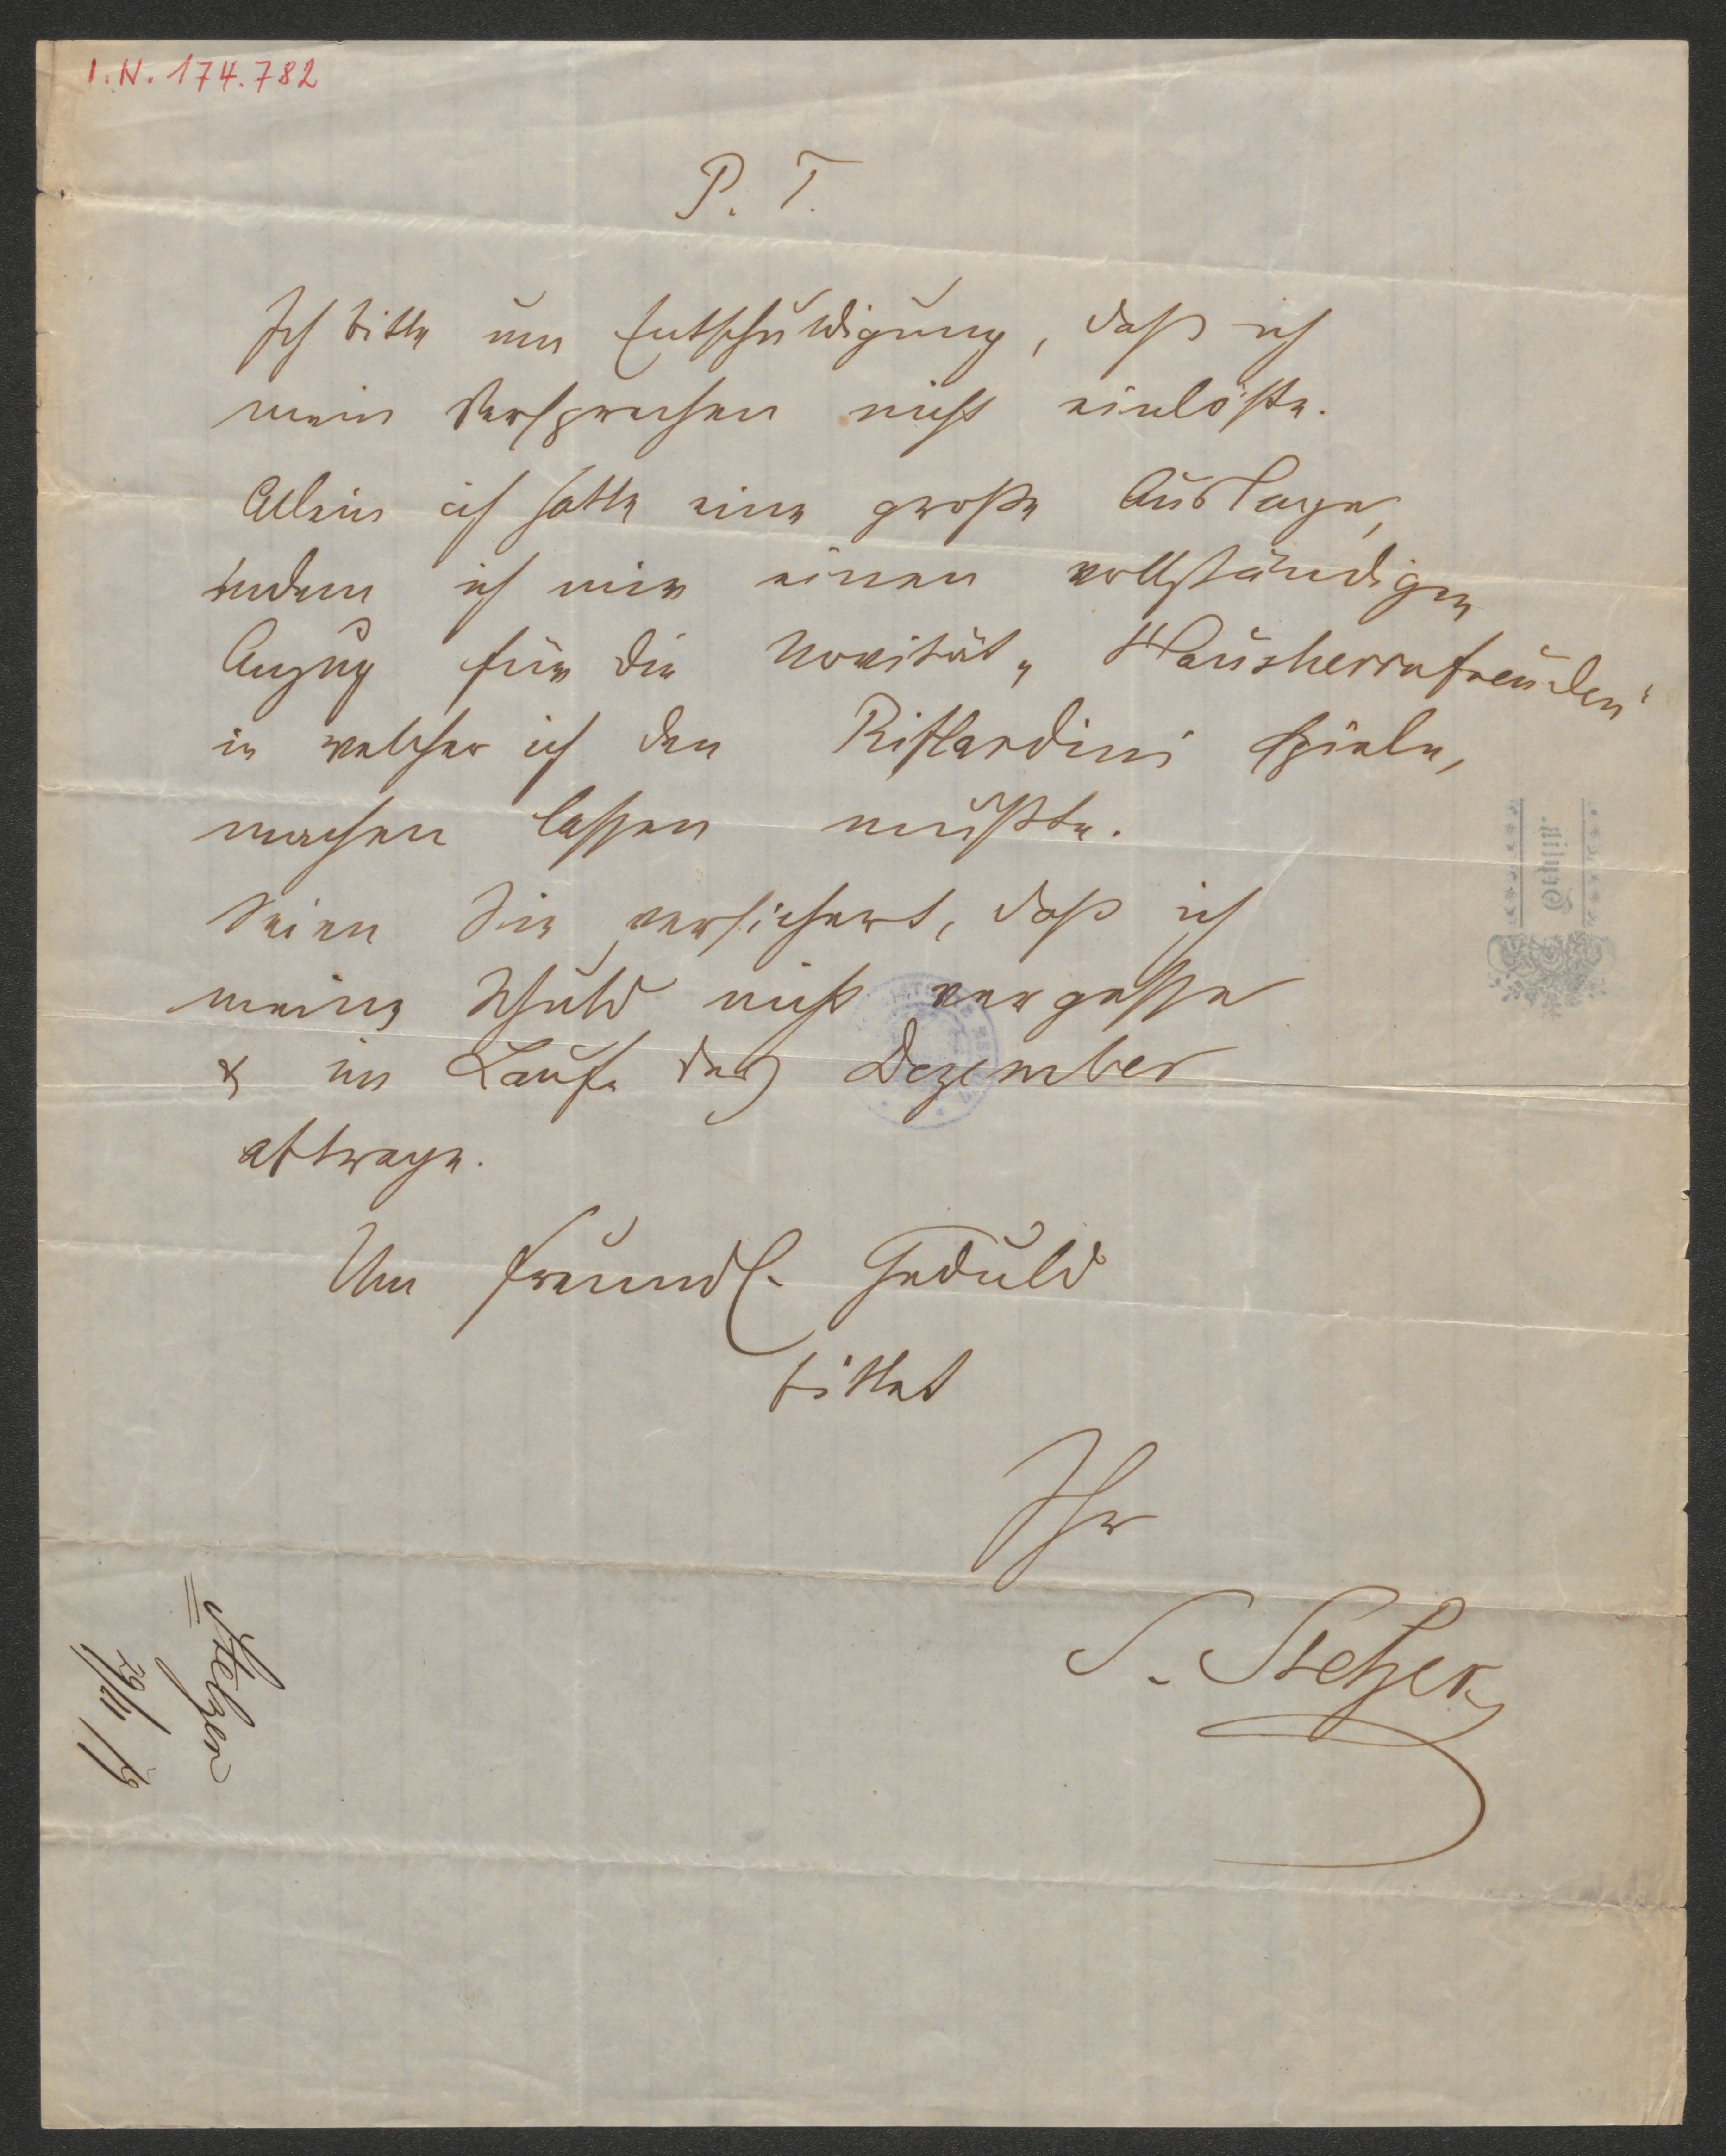 I.N. 174.782
P. T.
Ich bitte um Entschuldigung, daß ich
mein Versprechen nicht einlöste.
Allein ich hatte eine große Auslage,
indem ich mir einen vollständigen
Anzug für die Novität „Hausherrnfreuden“
in welcher ich den Riflardini spiele,
machen lassen mußte.
Seien Sie versichert, daß ich
meine Schuld nicht vergesse
& im Laufe des Dezember
abtrage.
Um freundl. Geduld
bittet
Ihr
S. Stelzer
Stelzer
29/11 79
Teplitz.